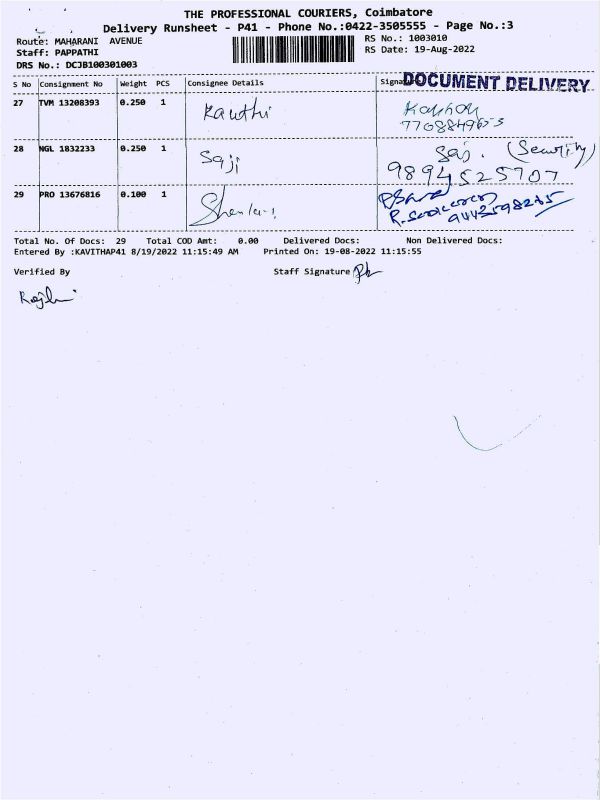 THE PROFESSIONAL COURIERS, Coimbatore
Delivery Runsheet - P41 - Phone No.:0422-3505555 - Page No.:3
Route: MAHARANI AVENUE
RS No.: 1003010
Staff: PAPPATHI
RS Date: 19-Aug-2022
DRS No.: DCJB100301003
DOCUMENT DELIVERY
S No Consignment No Weight PCS Consignee Details
27 TVM 13208393 0.250 1
28 NGL 1832233 0.250 1 Saji (Security)
9894525707
29 PRO 13676816 0.100 1
9443598265
Total No. Of Docs: 29 Total COD Amt: 0.00 Delivered Docs: Non Delivered Docs:
Entered By :KAVITHAP41 8/19/2022 11:15:49 AM Printed On: 19-08-2022 11:15:55
Verified By Staff Signature